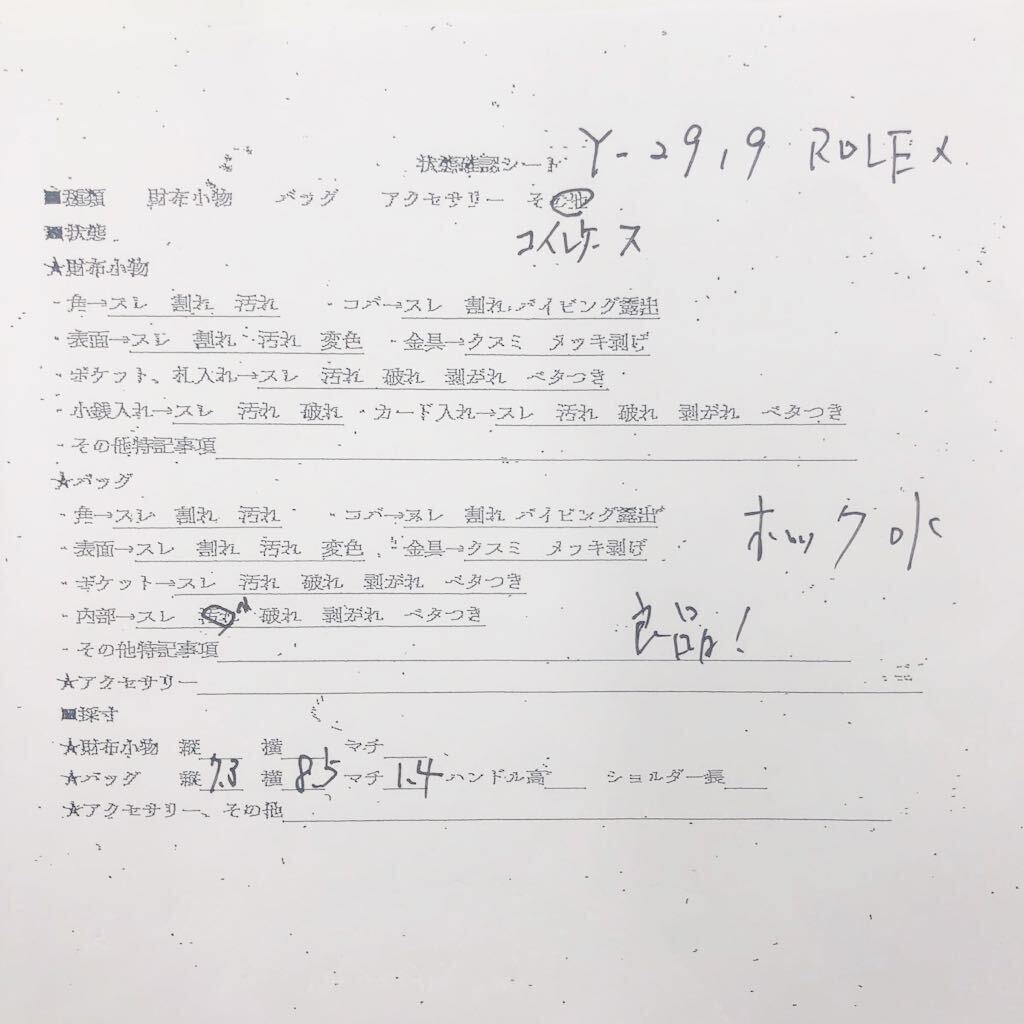 状態確認シート Y-2919 ROLEX
■種類 財布小物 バッグ アクセサリー その他
コインケース
■状態
★財布小物
・角→スレ 割れ 汚れ ・コバ→スレ 割れ パイピング露出
・表面→スレ 割れ 汚れ 変色 ・金具→クスミ メッキ剥げ
・ポケット、札入れ→スレ 汚れ 破れ 剥がれ ベタつき
・小銭入れ→スレ 汚れ 破れ ・カード入れ→スレ 汚れ 破れ 剥がれ ベタつき
・その他特記事項
★バッグ
・角→スレ 割れ 汚れ ・コバ→スレ 割れ パイピング露出
ホックOK
・表面→スレ 割れ 汚れ 変色 ・金具→クスミ メッキ剥げ
・ポケット→スレ 汚れ 破れ 剥がれ ベタつき
・内部→スレ 汚れ 破れ 剥がれ ベタつき
良品!
・その他特記事項
★アクセサリー
■採寸
★財布小物 縦 横 マチ
★バッグ 縦 7.3 横 8.5 マチ 1.4 ハンドル高 ショルダー長
★アクセサリー、その他